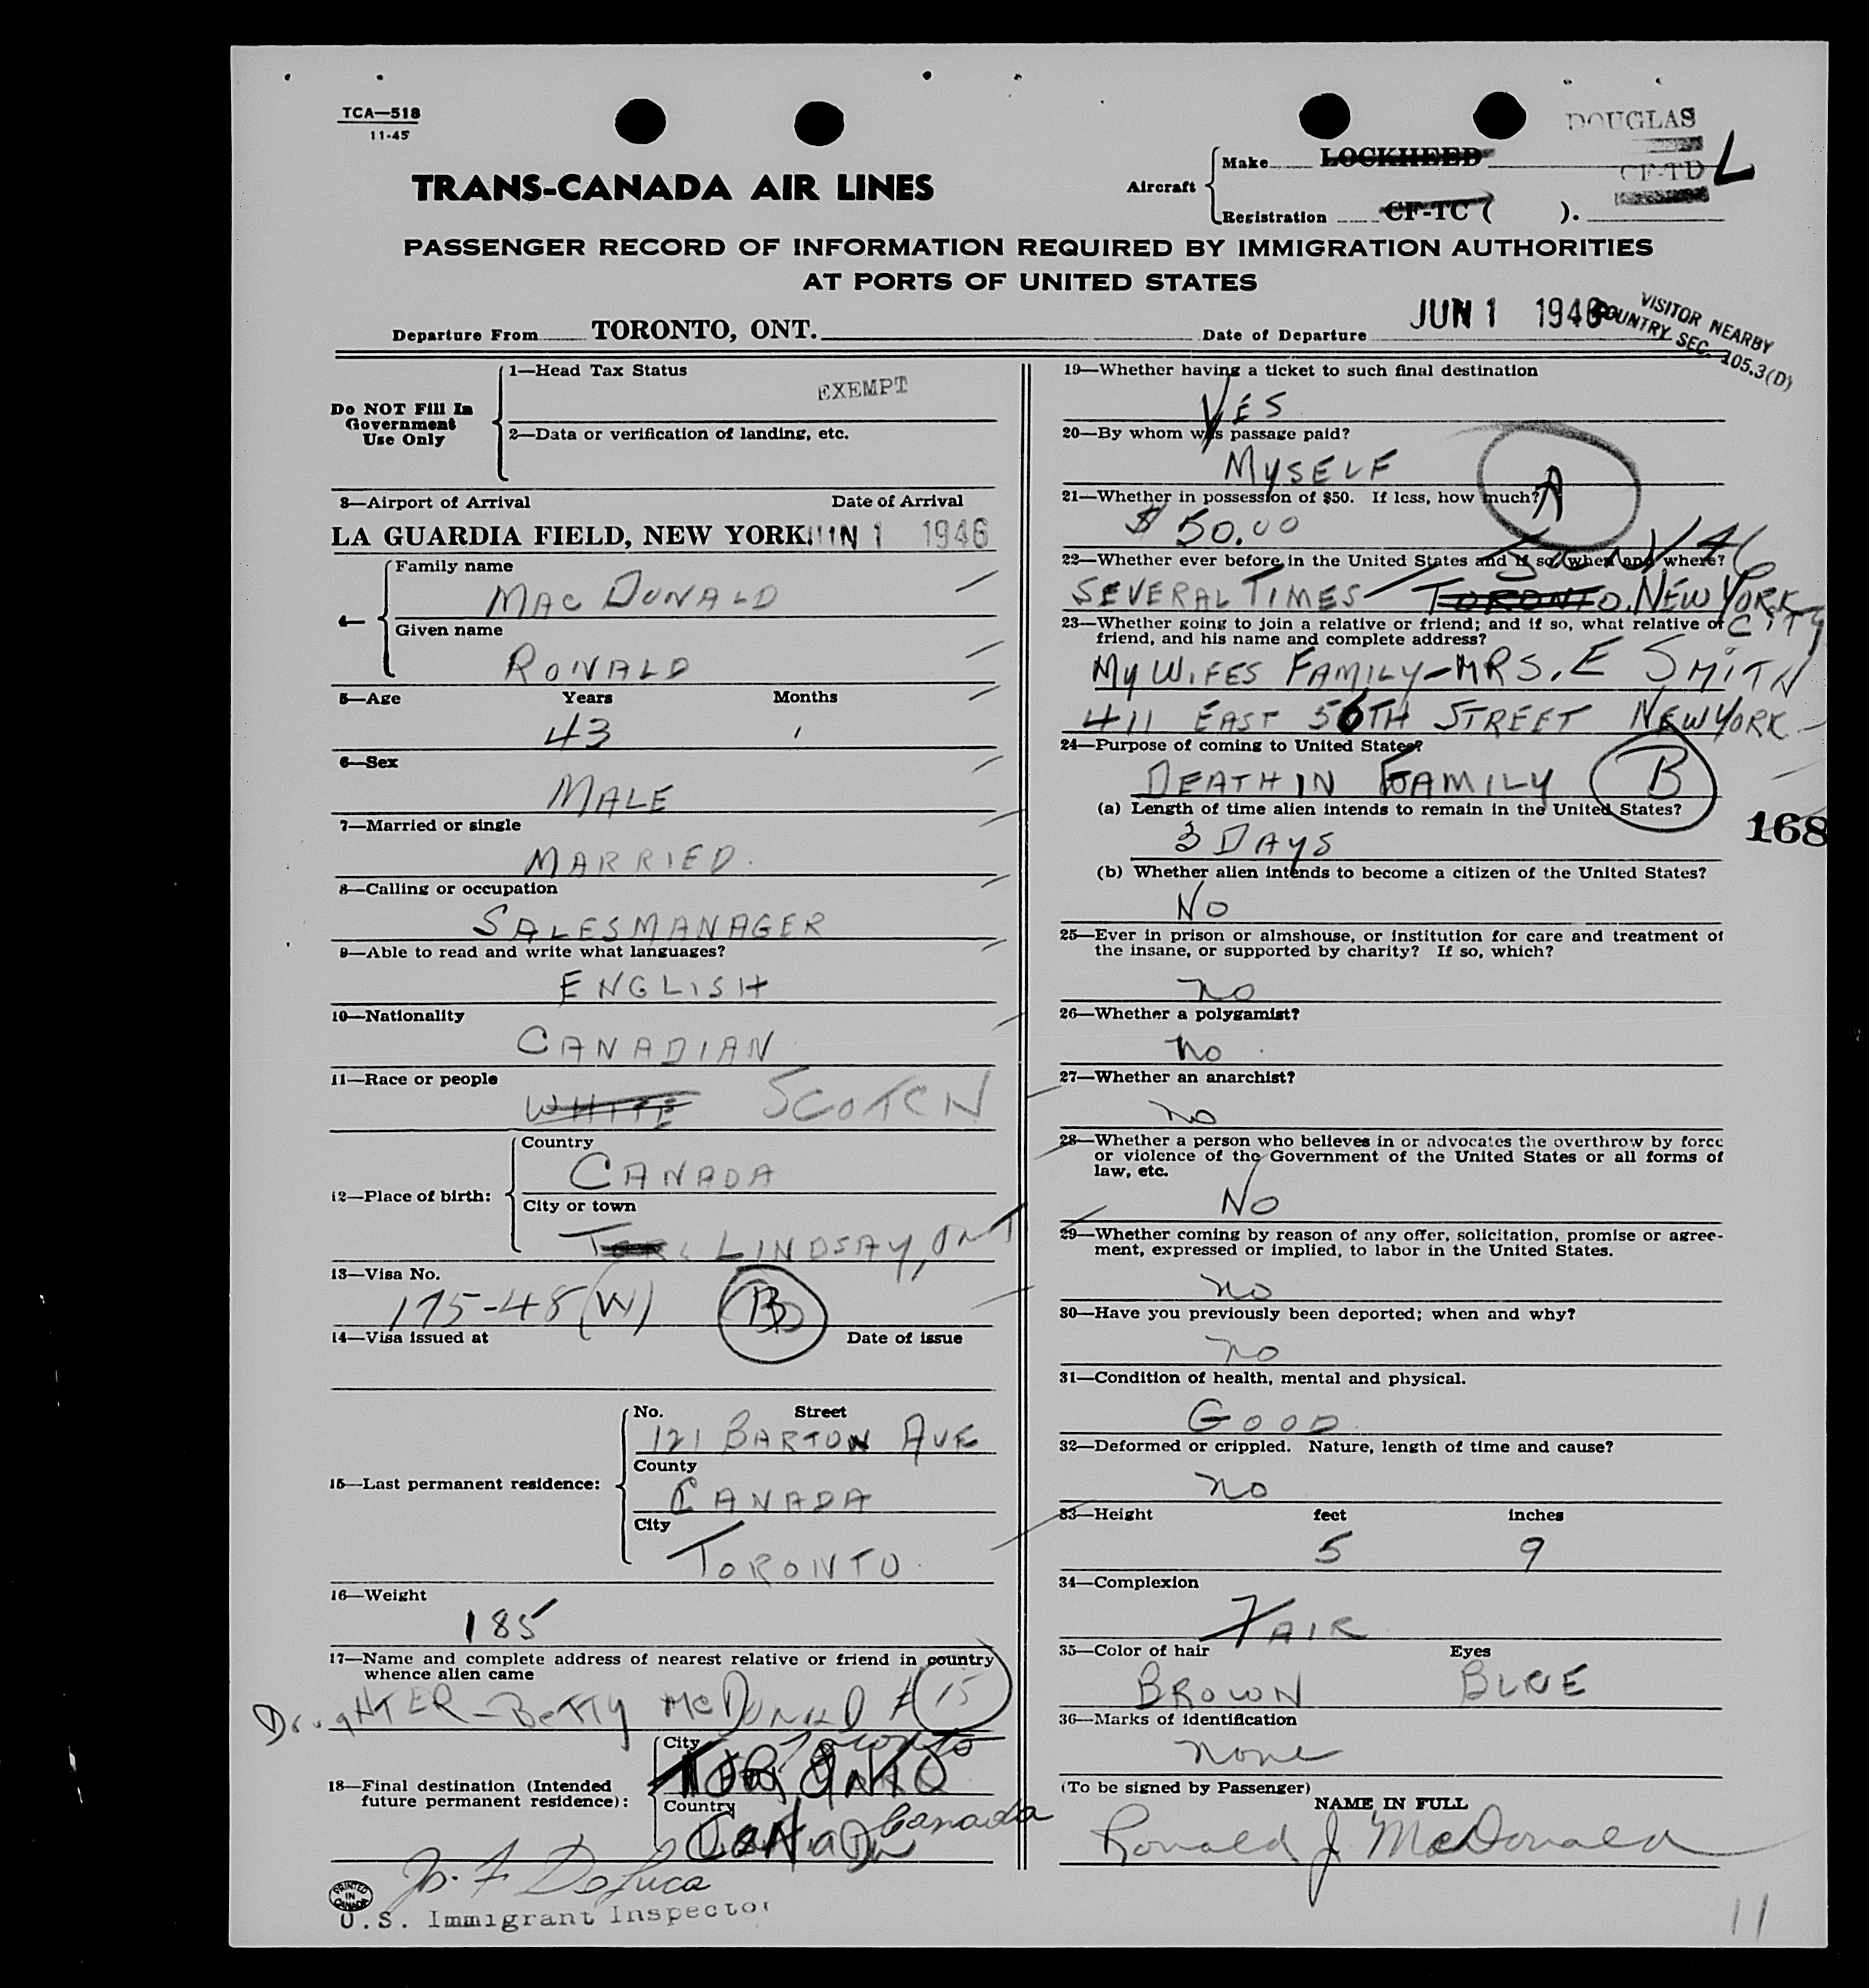 TCA—518
11-45
DOUGLAS
TRANS-CANADA AIR LINES
Aircraft
Make LOCKHEED
CF-TD L
Registration CF-TC ( ).
PASSENGER RECORD OF INFORMATION REQUIRED BY IMMIGRATION AUTHORITIES
AT PORTS OF UNITED STATES
Departure From TORONTO, ONT. Date of Departure JUN 1 1946
VISITOR NEARBY
COUNTRY SEC. 105.3(D)
Do NOT Fill In
Government
Use Only
1—Head Tax Status
EXEMPT
2—Data or verification of landing, etc.
3—Airport of Arrival Date of Arrival
LA GUARDIA FIELD, NEW YORK. JUN 1 1946
4—
Family name
MAC DONALD
Given name
RONALD
5—Age Years Months
43 1
6—Sex
MALE
7—Married or single
MARRIED.
8—Calling or occupation
SALESMANAGER
9—Able to read and write what languages?
ENGLISH
10—Nationality
CANADIAN
11—Race or people
WHITE SCOTCH
12—Place of birth:
Country
CANADA
City or town
LINDSAY, ONT
13—Visa No.
175-48 (W) B
14—Visa issued at Date of issue
15—Last permanent residence:
No. Street
121 BARTON AVE
County
CANADA
City
TORONTO.
16—Weight
185
17—Name and complete address of nearest relative or friend in country
whence alien came
DaughTER - BeTTy McDONALD 15
18—Final destination (Intended
future permanent residence):
City
Toronto
TORONTO
Country
Canada
Canada
DeLuca
PRINTED
IN
CANADA
U.S. Immigrant Inspector
19—Whether having a ticket to such final destination
YES
20—By whom was passage paid?
MYSELF
A
21—Whether in possession of $50. If less, how much?
$ 50.00
Jan/46
22—Whether ever before in the United States and if so, when and where?
SEVERAL TIMES - TORONTO. NEW YORK
CITY
23—Whether going to join a relative or friend; and if so, what relative or
friend, and his name and complete address?
MY WIFES FAMILY - MRS. E SMITH
411 EAST 56TH STREET NEW YORK
24—Purpose of coming to United States?
DEATH IN FAMILY B
(a) Length of time alien intends to remain in the United States?
168
3 DAYS
(b) Whether alien intends to become a citizen of the United States?
NO
25—Ever in prison or almshouse, or institution for care and treatment of
the insane, or supported by charity? If so, which?
no
26—Whether a polygamist?
no.
27—Whether an anarchist?
no
28—Whether a person who believes in or advocates the overthrow by force
or violence of the Government of the United States or all forms of
law, etc.
NO
29—Whether coming by reason of any offer, solicitation, promise or agree-
ment, expressed or implied, to labor in the United States.
no
30—Have you previously been deported; when and why?
no
31—Condition of health, mental and physical.
GOOD.
32—Deformed or crippled. Nature, length of time and cause?
no
33—Height feet inches
5 9
34—Complexion
FAIR
35—Color of hair Eyes
BROWN BLUE
36—Marks of identification
none
(To be signed by Passenger)
NAME IN FULL
Ronald J McDonald
11